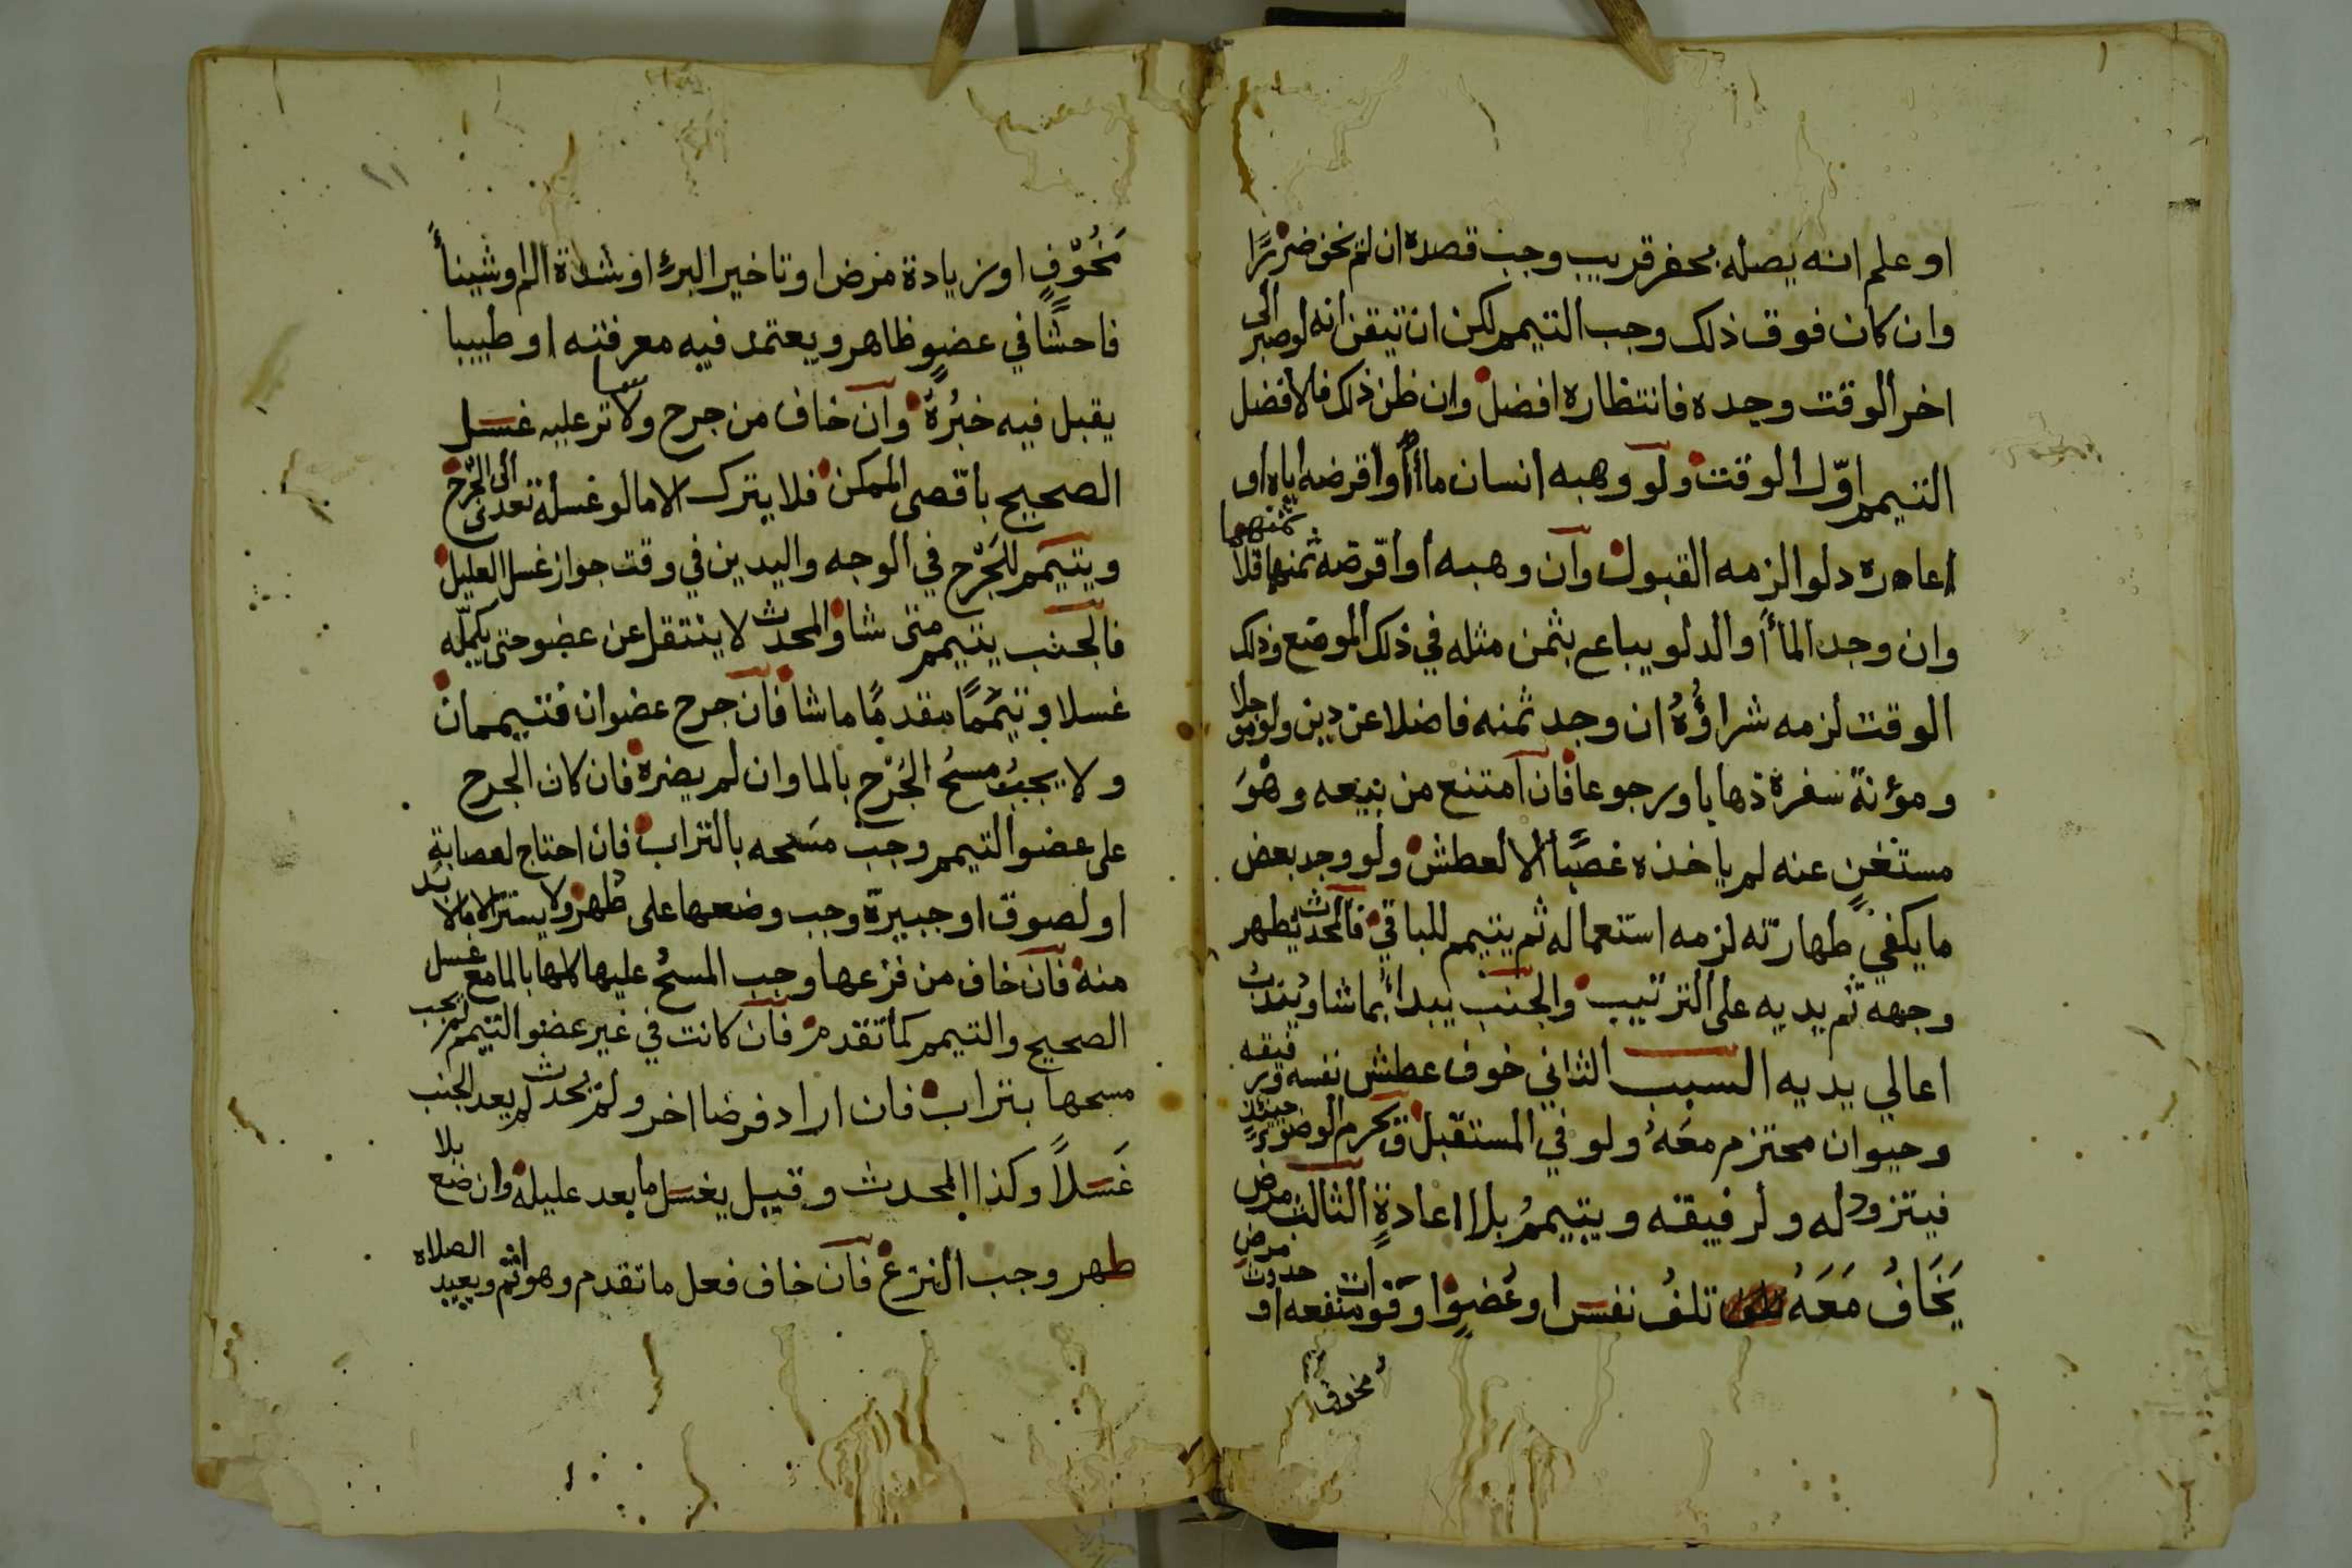 او علم انه يصله بحفر قريب وجب قصده ان لم يخف ضررًا
وان كان فوق ذلك وجب التيمم لكن ان تيقن انه لو صبر الى
اخر الوقت وجده فانتظاره افضل وان ظن ذلك فالافضل
التيمم اوّل الوقت ولو وهبه انسان ماأ أو اقرضه اياه او
اعاره دلوا لزمه القبول وان وهبه أو اقرضه ثمنهما فلا
وان وجد الماأ أو الدلو يباع بثمن مثله في ذلك الموضع وذلك
الوقت لزمه شراؤُهُ ان وجد ثمنه فاضلا عن دين ولو موجلا
ومؤنة سفره ذهابا ورجوعا فان امتنع من بيعه وهوَ
مستغنٍ عنه لم ياخذه غصبًا الا لعطش ولو وجد بعض
ما يكفي طهارته لزمه استعماله ثم يتيمم للباقي فالمحدث يطهر
وجهه ثم يديه على الترتيب والجنب يبدأ بما شا ويندب
اعالي يديه السبب الثاني خوف عطش نفسه ورفيقه
وحيوان محتزم معَهُ ولو في المستقبل ويحرم الوضوء حينئذٍ
فيتزود له ولرفيقه ويتيممُ بلا اعادةٍ الثالث مرض
يَخَافُ مَعَهُ تلفُ نفس او عُضوٍ او فوات منفعه او حدوث مرض
مخوف
مَخُوّفٍ او زيادة مرض او تاخير البرء او شدة الم او شيناً
فاحشًا في عضوٍ ظاهر ويعتمد فيه معرفته او طبيبا
يقبل فيه خبرُهُ وان خاف من جرح ولا ساتر عليه غسل
الصحيح باقصى الممكن فلا يترك الا ما لو غسله تعدى الى الجُرح
ويتيمم للجُرْح في الوجه واليدين في وقت جواز غسل العليل
فالجنب يتيمم متى شا والمحدث لا ينتقل عن عضو حتى يكمّله
غسلا وتيمّمًا مقدمًا ما شا فان جرح عضوان فتيممان
ولا يجبُ مسحُ الجُرْح بالما وان لم يضره فان كان الجرح
على عضو التيمم وجب مسَحه بالتراب فان احتاج لعصابةٍ
او لصوق او جبيرة وجب وضعها على طهر ولا يستر الا ما لا بد
منه فان خاف من نزعها وجب المسحُ عليها كلها بالما مع غسل
الصحيح والتيمم كما تقدم فان كانت في غير عضو التيمم لم يجب
مسحها بتراب فان اراد فرضا اخر ولم يحدث لم يعد الجنب
غَسلاً وكذا المحدث وقيل يغسل ما بعد عليله وان وضع بلا
طهر وجب النزع فان خاف فعل ما تقدم وهو اثم ويعيد الصلاه